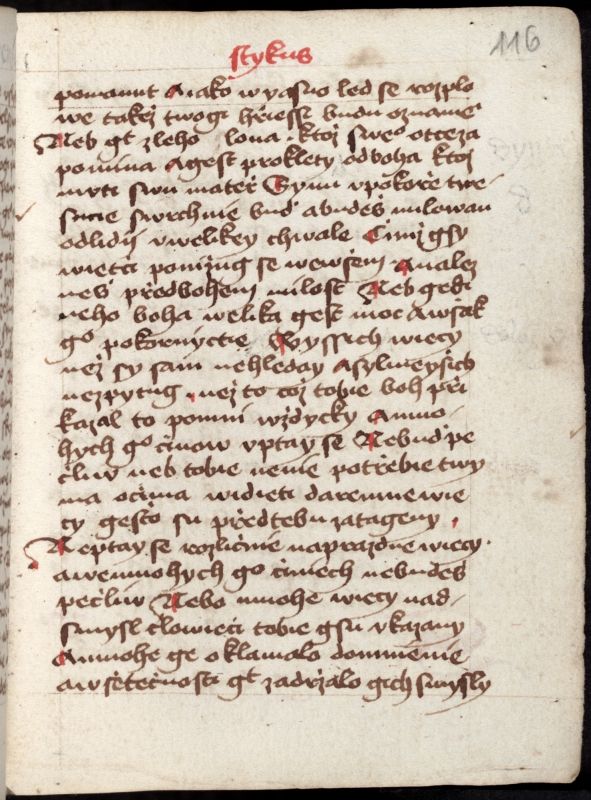 116
stykus
pomanut A iako w yasno led se rozplo
we takez twogi hřiessi budu oznamē
Neb gt zleho lona ktoz sweo otce za
pomina A gest proklety od boha ktoz
mrti swu mateř Synu v pokoře twe
sucie swrchnie bud a budes milowan
od lidij v welikey chwale Cimz gsy
wietci ponizug se we wsem A nalez
nes předbohem milost Neb gedi
neho boha welika gest moc A wsak
go pokornyctie Wyssich wiecy
nez sy sam nehleday A sylneysich
nezpytug nez to coz tobie boh při
kazal to pomni wzdycky A mno
hych go cinow nptay se Nebud pe
cliw neb tobie nenie potřebie twy
ma ocima widieti daremne wie
cy gesto su předtebu zatageny
Neptay se rozlicnie naprazdne wiecy
a wemnohych go ciniech nebudes
pecliw Nebo mnohe wiecy nad
smysl clowieci tobie gsu vkazany
A mnohe ge oklamalo domnienie
a w sětecnosti gt zadrzalo gich smysly